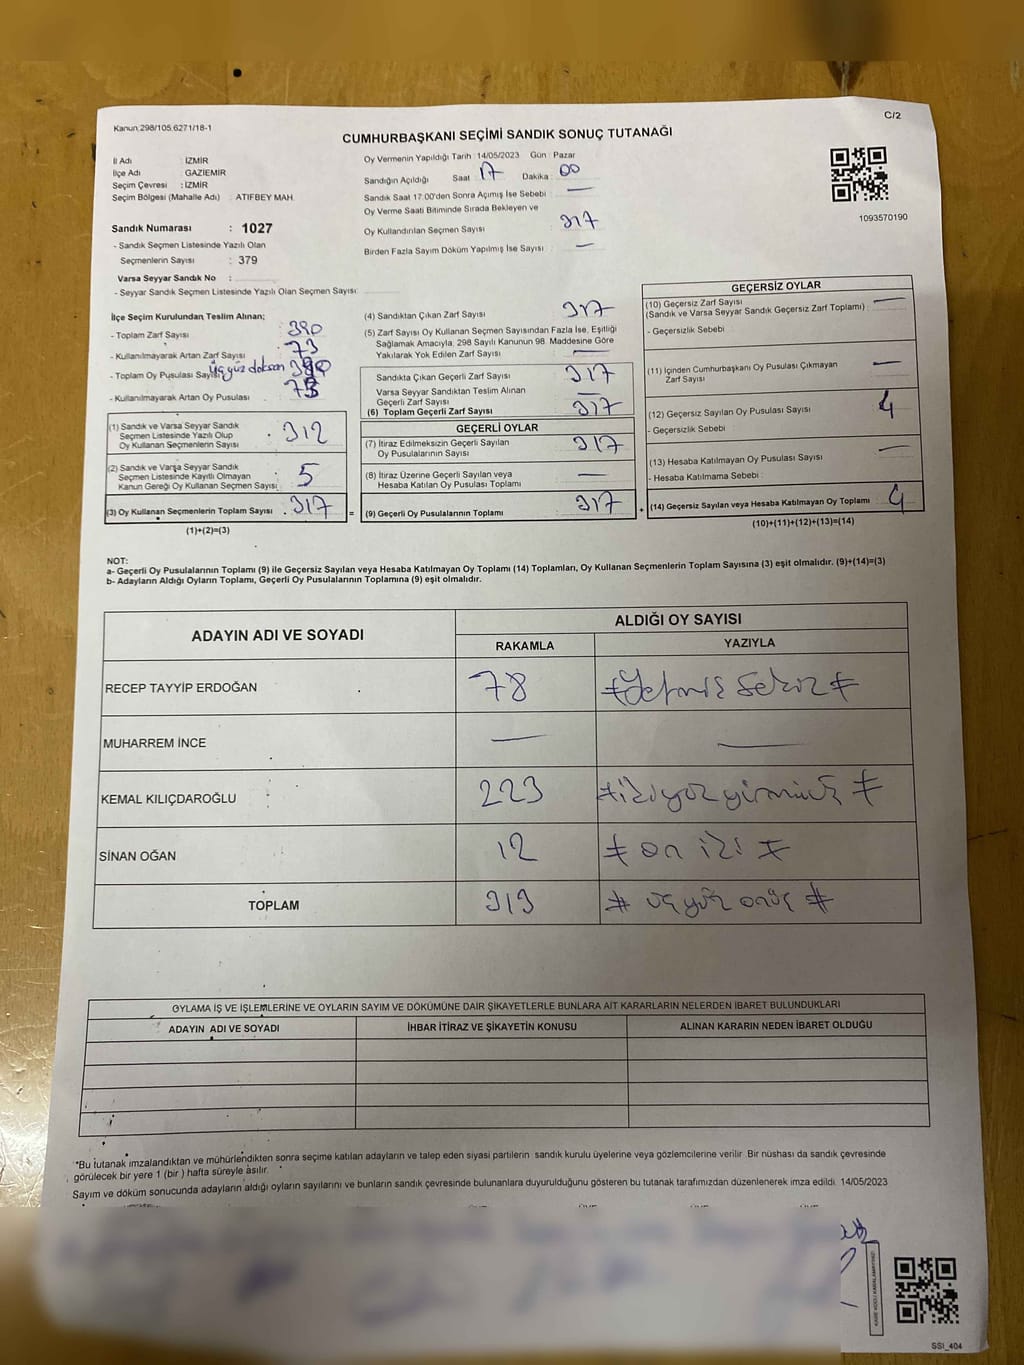 Kanun:298/105,6271/18-1
C/2
CUMHURBAŞKANI SEÇİMİ SANDIK SONUÇ TUTANAĞI
İl Adı : İZMİR
İlçe Adı : GAZİEMİR
Seçim Çevresi : İZMİR
Seçim Bölgesi (Mahalle Adı) : ATIFBEY MAH.
Sandık Numarası : 1027
- Sandık Seçmen Listesinde Yazılı Olan
Seçmenlerin Sayısı : 379
Varsa Seyyar Sandık No :
- Seyyar Sandık Seçmen Listesinde Yazılı Olan Seçmen Sayısı:
Oy Vermenin Yapıldığı Tarih : 14/05/2023 Gün : Pazar
Sandığın Açıldığı Saat : 17 Dakika : 00
Sandık Saat 17:00'den Sonra Açımış İse Sebebi : —
Oy Verme Saati Bitiminde Sırada Bekleyen ve
Oy Kullandırılan Seçmen Sayısı : 317
Birden Fazla Sayım Döküm Yapılmış İse Sayısı : —
1093570190
İlçe Seçim Kurulundan Teslim Alınan;
- Toplam Zarf Sayısı : 390
- Kullanılmayarak Artan Zarf Sayısı : 73
- Toplam Oy Pusulası Sayısı üçyüz doksan 390
- Kullanılmayarak Artan Oy Pusulası : 73
(1) Sandık ve Varsa Seyyar Sandık
Seçmen Listesinde Yazılı Olup
Oy Kullanan Seçmenlerin Sayısı : 312
(2) Sandık ve Varsa Seyyar Sandık
Seçmen Listesinde Kayıtlı Olmayan
Kanun Gereği Oy Kullanan Seçmen Sayısı : 5
(3) Oy Kullanan Seçmenlerin Toplam Sayısı : 317
(1)+(2)=(3)
=
(4) Sandıktan Çıkan Zarf Sayısı : 317
(5) Zarf Sayısı Oy Kullanan Seçmen Sayısından Fazla İse, Eşitliği
Sağlamak Amacıyla, 298 Sayılı Kanunun 98. Maddesine Göre
Yakılarak Yok Edilen Zarf Sayısı : —
Sandıkta Çıkan Geçerli Zarf Sayısı : 317
Varsa Seyyar Sandıktan Teslim Alınan
Geçerli Zarf Sayısı
(6) Toplam Geçerli Zarf Sayısı : 317
GEÇERLİ OYLAR
(7) İtiraz Edilmeksizin Geçerli Sayılan
Oy Pusulalarının Sayısı : 317
(8) İtiraz Üzerine Geçerli Sayılan veya
Hesaba Katılan Oy Pusulası Toplamı : —
(9) Geçerli Oy Pusulalarının Toplamı : 317
+
GEÇERSİZ OYLAR
(10) Geçersiz Zarf Sayısı : —
(Sandık ve Varsa Seyyar Sandık Geçersiz Zarf Toplamı)
- Geçersizlik Sebebi :
(11) İçinden Cumhurbaşkanı Oy Pusulası Çıkmayan
Zarf Sayısı : —
(12) Geçersiz Sayılan Oy Pusulası Sayısı : 4
- Geçersizlik Sebebi :
(13) Hesaba Katılmayan Oy Pusulası Sayısı : —
- Hesaba Katılmama Sebebi :
(14) Geçersiz Sayılan veya Hesaba Katılmayan Oy Toplamı : 4
(10)+(11)+(12)+(13)=(14)
NOT:
a- Geçerli Oy Pusulalarının Toplamı (9) ile Geçersiz Sayılan veya Hesaba Katılmayan Oy Toplamı (14) Toplamları, Oy Kullanan Seçmenlerin Toplam Sayısına (3) eşit olmalıdır. (9)+(14)=(3)
b- Adayların Aldığı Oyların Toplamı, Geçerli Oy Pusulalarının Toplamına (9) eşit olmalıdır.
ADAYIN ADI VE SOYADI ALDIĞI OY SAYISI
RAKAMLA YAZIYLA
RECEP TAYYİP ERDOĞAN 78 #Yetmiş Sekiz#
MUHARREM İNCE — —
KEMAL KILIÇDAROĞLU 223 #ikiyüz yirmiüç#
SİNAN OĞAN 12 # on iki #
TOPLAM 313 # üçyüz onüç #
OYLAMA İŞ VE İŞLEMLERİNE VE OYLARIN SAYIM VE DÖKÜMÜNE DAİR ŞİKAYETLERLE BUNLARA AİT KARARLARIN NELERDEN İBARET BULUNDUKLARI
ADAYIN ADI VE SOYADI İHBAR İTİRAZ VE ŞİKAYETİN KONUSU ALINAN KARARIN NEDEN İBARET OLDUĞU
*Bu tutanak imzalandıktan ve mühürlendikten sonra seçime katılan adayların ve talep eden siyasi partilerin sandık kurulu üyelerine veya gözlemcilerine verilir. Bir nüshası da sandık çevresinde
görülecek bir yere 1 (bir) hafta süreyle asılır.
Sayım ve döküm sonucunda adayların aldığı oyların sayılarını ve bunların sandık çevresinde bulunanlara duyurulduğunu gösteren bu tutanak tarafımızdan düzenlenerek imza edildi. 14/05/2023
SSI_404